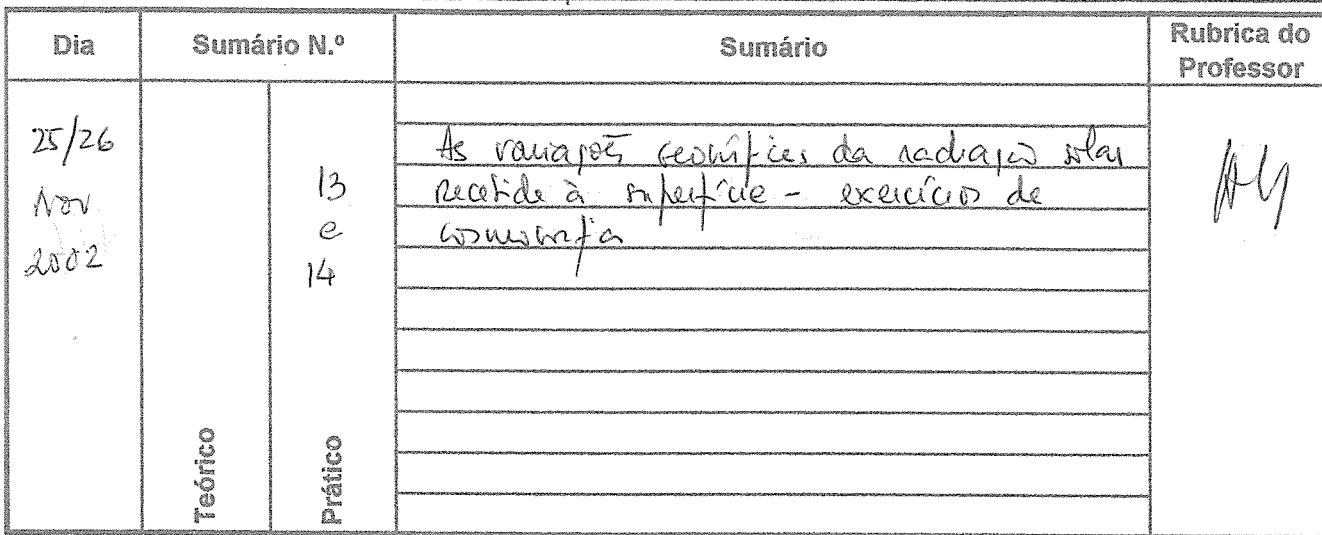 Dia
Sumário N.º
Sumário
Rubrica do
Professor
25/26
Nov
2002
Teórico
13
e
14
Prático
As variações geográficas da radiação solar
recebida à superfície - exercícios de
cosmografia